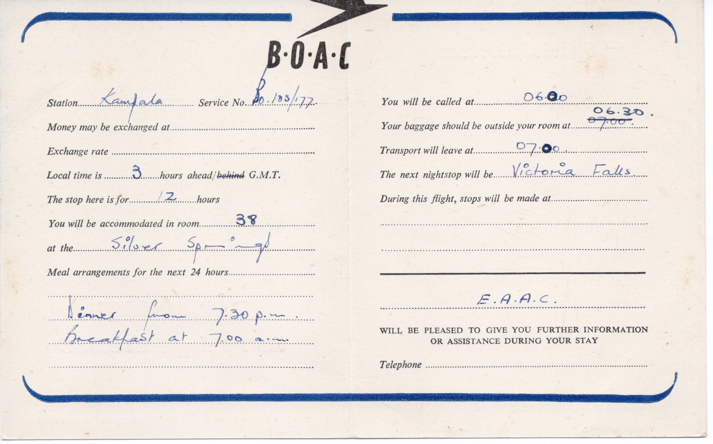 B·O·A·C
Station Kampala Service No. Bo.133/177
Money may be exchanged at
Exchange rate
Local time is 3 hours ahead/behind G.M.T.
The stop here is for 12 hours
You will be accommodated in room 38
at the Silver Springs
Meal arrangements for the next 24 hours
Dinner from 7.30 p.m.
Breakfast at 7.00 a.m.
You will be called at 06.00
06.30.
Your baggage should be outside your room at 07.00.
Transport will leave at 07.00
The next nightstop will be Victoria Falls
During this flight, stops will be made at
E.A.A.C.
WILL BE PLEASED TO GIVE YOU FURTHER INFORMATION
OR ASSISTANCE DURING YOUR STAY
Telephone